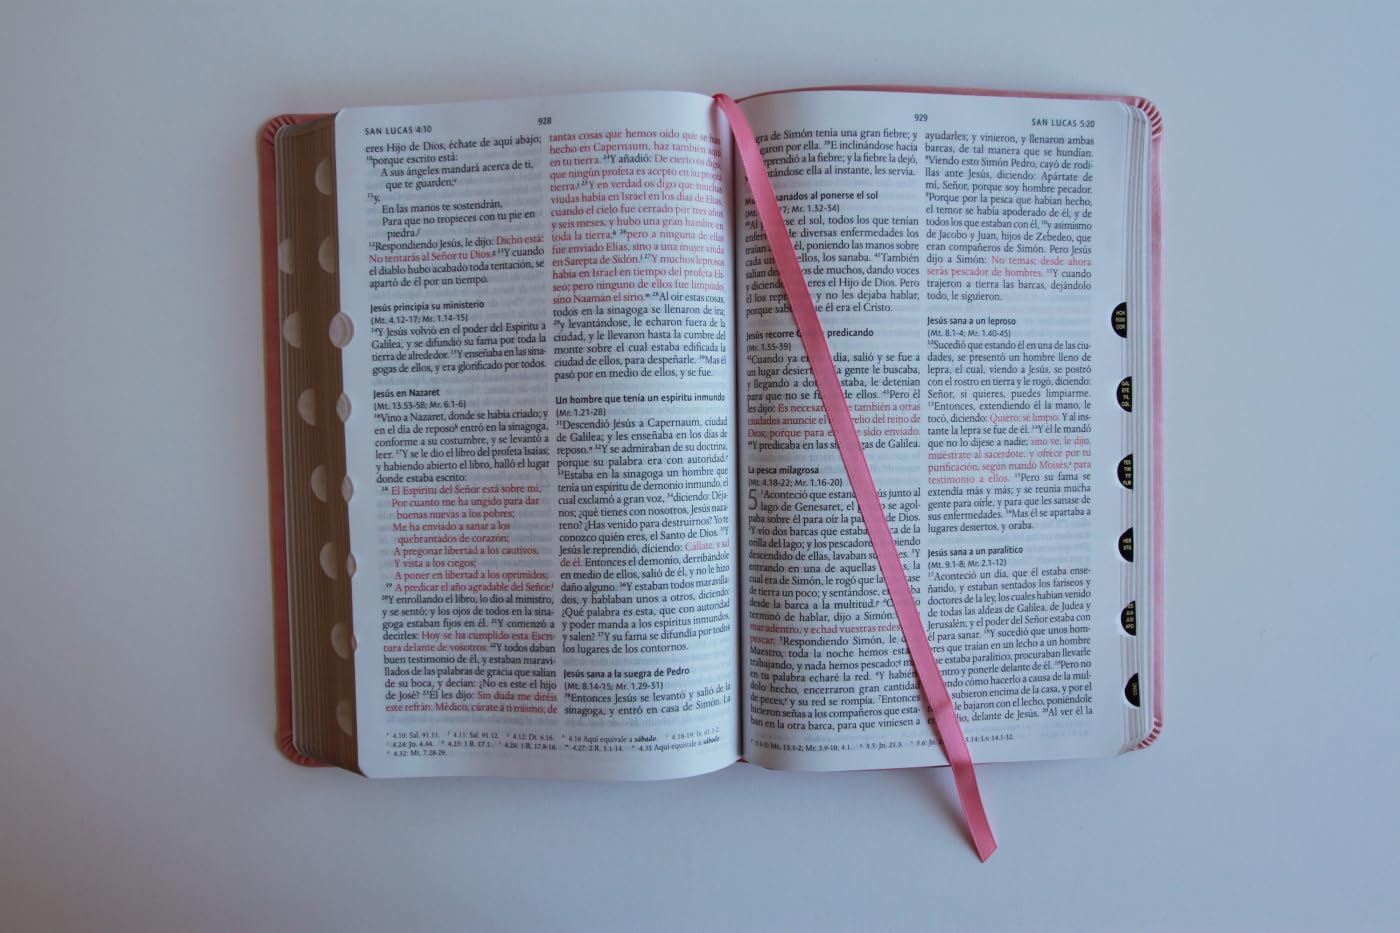 SAN LUCAS 4:10
928
eres Hijo de Dios, échate de aquí abajo;
10porque escrito está:
A sus ángeles mandará acerca de ti,
que te guarden;
11y,
En las manos te sostendrán,
Para que no tropieces con tu pie en
piedra.
12Respondiendo Jesús, le dijo: Dicho está:
No tentarás al Señor tu Dios. 13Y cuando
el diablo hubo acabado toda tentación, se
apartó de él por un tiempo.
Jesús principia su ministerio
(Mt. 4.12-17; Mr. 1.14-15)
14Y Jesús volvió en el poder del Espíritu a
Galilea, y se difundió su fama por toda la
tierra de alrededor. 15Y enseñaba en las sina-
gogas de ellos, y era glorificado por todos.
Jesús en Nazaret
(Mt. 13.53-58; Mr. 6.1-6)
16Vino a Nazaret, donde se había criado; y
en el día de reposo entró en la sinagoga,
conforme a su costumbre, y se levantó a
leer. 17Y se le dio el libro del profeta Isaías;
y habiendo abierto el libro, halló el lugar
donde estaba escrito:
18 El Espíritu del Señor está sobre mí,
Por cuanto me ha ungido para dar
buenas nuevas a los pobres;
Me ha enviado a sanar a los
quebrantados de corazón;
A pregonar libertad a los cautivos,
Y vista a los ciegos;
A poner en libertad a los oprimidos;
19 A predicar el año agradable del Señor.
20Y enrollando el libro, lo dio al ministro,
y se sentó; y los ojos de todos en la sina-
goga estaban fijos en él. 21Y comenzó a
decirles: Hoy se ha cumplido esta Escri-
tura delante de vosotros. 22Y todos daban
buen testimonio de él, y estaban maravi-
llados de las palabras de gracia que salían
de su boca, y decían: ¿No es este el hijo
de José? 23Él les dijo: Sin duda me diréis
este refrán: Médico, cúrate a ti mismo; de
tantas cosas que hemos oído que se han
hecho en Capernaum, haz también aquí
en tu tierra. 24Y añadió: De cierto os digo,
que ningún profeta es acepto en su propia
tierra. 25Y en verdad os digo que muchas
viudas había en Israel en los días de Elías,
cuando el cielo fue cerrado por tres años
y seis meses, y hubo una gran hambre en
toda la tierra; 26pero a ninguna de ellas
fue enviado Elías, sino a una mujer viuda
en Sarepta de Sidón. 27Y muchos leprosos
había en Israel en tiempo del profeta Eli-
seo; pero ninguno de ellos fue limpiado,
sino Naamán el sirio. 28Al oír estas cosas,
todos en la sinagoga se llenaron de ira;
29y levantándose, le echaron fuera de la
ciudad, y le llevaron hasta la cumbre del
monte sobre el cual estaba edificada la
ciudad de ellos, para despeñarle. 30Mas él
pasó por en medio de ellos, y se fue.
Un hombre que tenía un espíritu inmundo
(Mr. 1.21-28)
31Descendió Jesús a Capernaum, ciudad
de Galilea; y les enseñaba en los días de
reposo. 32Y se admiraban de su doctrina,
porque su palabra era con autoridad.
33Estaba en la sinagoga un hombre que
tenía un espíritu de demonio inmundo, el
cual exclamó a gran voz, 34diciendo: Déja-
nos; ¿qué tienes con nosotros, Jesús naza-
reno? ¿Has venido para destruirnos? Yo te
conozco quién eres, el Santo de Dios. 35Y
Jesús le reprendió, diciendo: Cállate, y sal
de él. Entonces el demonio, derribándole
en medio de ellos, salió de él, y no le hizo
daño alguno. 36Y estaban todos maravilla-
dos, y hablaban unos a otros, diciendo:
¿Qué palabra es esta, que con autoridad
y poder manda a los espíritus inmundos,
y salen? 37Y su fama se difundía por todos
los lugares de los contornos.
Jesús sana a la suegra de Pedro
(Mt. 8.14-15; Mr. 1.29-31)
38Entonces Jesús se levantó y salió de la
sinagoga, y entró en casa de Simón. La
4.10: Sal. 91.11. 4.11: Sal. 91.12. 4.12: Dt. 6.16. 4.16 Aquí equivale a sábado. 4.18-19: Is. 61.1-2.
4.24: Jn. 4.44. 4.25: 1 R. 17.1. 4.26: 1 R. 17.8-16. 4.27: 2 R. 5.1-14. 4.31 Aquí equivale a sábado.
4.32: Mt. 7.28-29.
929
SAN LUCAS 5:20
gra de Simón tenía una gran fiebre; y
garon por ella. 39E inclinándose hacia
reprendió a la fiebre; y la fiebre la dejó,
ntándose ella al instante, les servía.
sanados al ponerse el sol
17; Mr. 1.32-34)
40Al se el sol, todos los que tenían
enfer de diversas enfermedades los
traían él, poniendo las manos sobre
cada un ellos, los sanaba. 41También
salían de os de muchos, dando voces
y diciend eres el Hijo de Dios. Pero
él los repr y no les dejaba hablar,
porque sab ue él era el Cristo.
Jesús recorre predicando
(Mr. 1.35-39)
42Cuando ya e día, salió y se fue a
un lugar desiert a gente le buscaba,
y llegando a don staba, le detenían
para que no se f de ellos. 43Pero él
les dijo: Es necesar e también a otras
ciudades anuncie el elio del reino de
Dios; porque para e sido enviado.
44Y predicaba en las si gogas de Galilea.
La pesca milagrosa
(Mt. 4.18-22; Mr. 1.16-20)
5 1Aconteció que estand sús junto al
lago de Genesaret, el se agol-
paba sobre él para oír la pa de Dios.
2Y vio dos barcas que estaba ca de la
orilla del lago; y los pescadore biendo
descendido de ellas, lavaban su es. 3Y
entrando en una de aquellas s, la
cual era de Simón, le rogó que la ase
de tierra un poco; y sentándose, e ba
desde la barca a la multitud. 4C
terminó de hablar, dijo a Simón:
mar adentro, y echad vuestras redes
pescar. 5Respondiendo Simón, le d
Maestro, toda la noche hemos esta
trabajando, y nada hemos pescado; m
en tu palabra echaré la red. 6Y habién
dolo hecho, encerraron gran cantidad
de peces, y su red se rompía. 7Entonces
hicieron señas a los compañeros que esta-
ban en la otra barca, para que viniesen a
ayudarles; y vinieron, y llenaron ambas
barcas, de tal manera que se hundían.
8Viendo esto Simón Pedro, cayó de rodi-
llas ante Jesús, diciendo: Apártate de
mí, Señor, porque soy hombre pecador.
9Porque por la pesca que habían hecho,
el temor se había apoderado de él, y de
todos los que estaban con él, 10y asimismo
de Jacobo y Juan, hijos de Zebedeo, que
eran compañeros de Simón. Pero Jesús
dijo a Simón: No temas; desde ahora
serás pescador de hombres. 11Y cuando
trajeron a tierra las barcas, dejándolo
todo, le siguieron.
Jesús sana a un leproso
(Mt. 8.1-4; Mr. 1.40-45)
12Sucedió que estando él en una de las ciu-
dades, se presentó un hombre lleno de
lepra, el cual, viendo a Jesús, se postró
con el rostro en tierra y le rogó, diciendo:
Señor, si quieres, puedes limpiarme.
13Entonces, extendiendo él la mano, le
tocó, diciendo: Quiero; sé limpio. Y al ins-
tante la lepra se fue de él. 14Y él le mandó
que no lo dijese a nadie; sino ve, le dijo,
muéstrate al sacerdote, y ofrece por tu
purificación, según mandó Moisés, para
testimonio a ellos. 15Pero su fama se
extendía más y más; y se reunía mucha
gente para oírle, y para que les sanase de
sus enfermedades. 16Mas él se apartaba a
lugares desiertos, y oraba.
Jesús sana a un paralítico
(Mt. 9.1-8; Mr. 2.1-12)
17Aconteció un día, que él estaba ense-
ñando, y estaban sentados los fariseos y
doctores de la ley, los cuales habían venido
de todas las aldeas de Galilea, de Judea y
Jerusalén; y el poder del Señor estaba con
él para sanar. 18Y sucedió que unos hom-
bres que traían en un lecho a un hombre
que estaba paralítico, procuraban llevarle
ntro y ponerle delante de él. 19Pero no
ando cómo hacerlo a causa de la mul-
subieron encima de la casa, y por el
le bajaron con el lecho, poniéndole
io, delante de Jesús. 20Al ver él la
5.1-3: Mt. 13.1-2; Mr. 3.9-10; 4.1. 5.5: Jn. 21.3. 5.6: Jn. 5.14: Lv. 14.1-32.
HCH
ROM
COR
GAL
EFE
FIL
COL
TES
TIM
TIT
FLM
HEB
STG
PED
JUA
JUD
APO
CONC